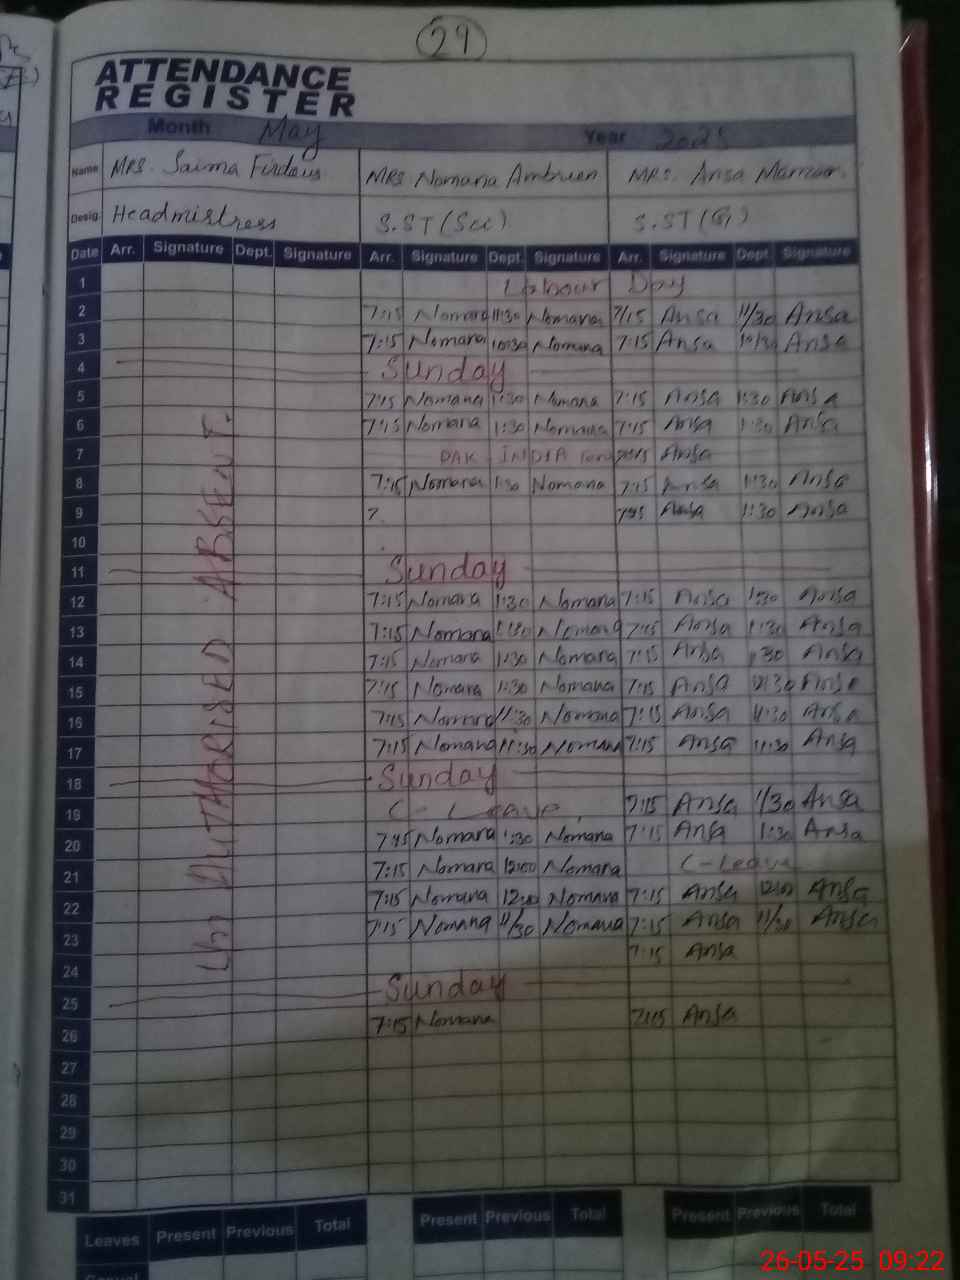 29
ATTENDANCE
REGISTER
Month May Year 2025
Name MRS. Saima Firdous MRS Nomana Ambreen MRS. Ansa Manzoor.
Desig. Headmistress S.ST (Sci) S.ST (G)
Date Arr. Signature Dept. Signature Arr. Signature Dept. Signature Arr. Signature Dept. Signature
UN AUTHORISED ABSENT.
1 Labour Day
2 7:15 Nomana 11:30 Nomana 7/15 Ansa 11/30 Ansa
3 7:15 Nomana 10:30 Nomana 7:15 Ansa 10/30 Ansa
4 Sunday
5 7:15 Nomana 1:30 Nomana 7:15 Ansa 1:30 Ansa
6 7:15 Nomana 1:30 Nomana 7:15 Ansa 1:30 Ansa
7 PAK INDIA 7:15 Ansa
8 7:15 Nomana 1:30 Nomana 7:15 Ansa 1:30 Ansa
9 7. 7:15 Ansa 1:30 Ansa
10
11 Sunday
12 7:15 Nomana 1:30 Nomana 7:15 Ansa 1:30 Ansa
13 7:15 Nomana 1:30 Nomana 7:15 Ansa 1:30 Ansa
14 7:15 Nomana 1:30 Nomana 7:15 Ansa 1:30 Ansa
15 7:15 Nomana 1:30 Nomana 7:15 Ansa Ansa
16 7:15 Nomana 11:30 Nomana 7:15 Ansa 11:30 Ansa
17 7:15 Nomana 11:30 Nomana 7:15 Ansa 11:30 Ansa
18 Sunday
19 C- Leave. 7:15 Ansa 1/30 Ansa
20 7:15 Nomana 1:30 Nomana 7:15 Ansa 1:30 Ansa
21 7:15 Nomana 12:00 Nomana C-Leave
22 7:15 Nomana 12:00 Nomana 7:15 Ansa 12:00 Ansa
23 7:15 Nomana 11/30 Nomana 7:15 Ansa 11/30 Ansa
24 7:15 Ansa
25 Sunday
26 7:15 Nomana 7:15 Ansa
27
28
29
30
31
Leaves Present Previous Total Present Previous Total Present Previous Total
Casual
26-05-25 09:22